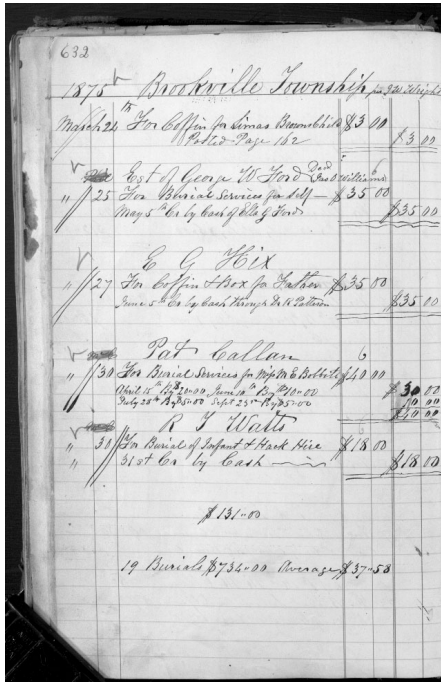 632
1875 Brookville Township per J M Wright
March 24th For Coffin for Simas Browns Child $3 00
Posted Page 162 $3 00
Est of George W Ford Decd Jas O Williams
" 25 For Burial Services for Self $35 00
May 5th Cr by Cash of Ella G Ford $35 00
E G Hix
" 27 For Coffin & Box for Father $35 00
June 5th Cr by Cash through Dr R Patterson $35 00
Pat Callan 6
" 30 For Burial Services for Miss M E $40 00
April 15th By $20=00 June 10th By $10=00 $30 00
July 28th By $5=00 Sept 23rd By $5=00 10 00
$40 00
R T Watts 6
" 30 For Burial of Infant & Hack Hire $18 00
" 31st Cr by Cash $18 00
$131=00
19 Burials $734=00 Average $37=58